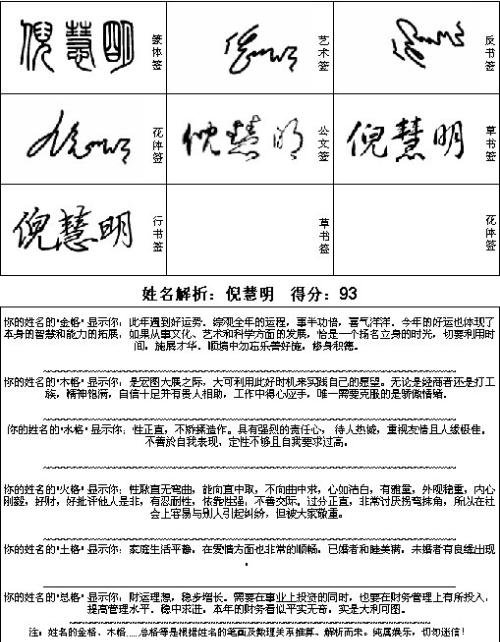 倪慧明 篆体签
艺术签
反书签
花体签
倪慧明 公文签
倪慧明 草书签
倪慧明 行书签
草书签
花体签
姓名解析：倪慧明 得分：93
你的姓名的"金格"显示你：此年遇到好运势。综观全年的运程，事半功倍，喜气洋洋。今年的好运也体现了
本身的智慧和能力的拓展，如果从事文化、艺术和科学方面的发展，恰是一个扬名立身的时光，切要利用时
间，施展才华。顺境中勿忘乐善好施，修身积德。
你的姓名的"木格"显示你：是宏图大展之际，大可利用此好时机来实践自己的愿望。无论是经商者还是打工
族，精神饱满，自信十足并有贵人相助，工作中得心应手，唯一需要克服的是骄傲情绪。
你的姓名的"水格"显示你：性正直，不矫揉造作。具有强烈的责任心，待人热诚，重视友情且人缘极佳。
不善於自我表现，定性不够且自我要求过高。
你的姓名的"火格"显示你：性耿直无弯曲，能向直中取，不向曲中求，心如洁白，有雅量，外观稳重，内心
刚毅，好财，好批评他人是非，有忍耐性，依靠性强，不善交际。过分正直，非常讨厌拐弯抹角，所以在社
会上容易与别人引起纠纷，但被大家敬重。
你的姓名的"土格"显示你：家庭生活平静，在爱情方面也非常的顺畅，已婚者和睦美满，未婚者有良缘出现
。
你的姓名的"总格"显示你：财运理想，稳步增长。需要在事业上投资的同时，也要在财务管理上有所投入，
提高管理水平。稳中求进。本年的财务看似平实无奇，实是大利可图。
注：姓名的金格、木格……总格等是根据姓名的笔画及数理关系推算、解析而来，纯属娱乐，切勿迷信！